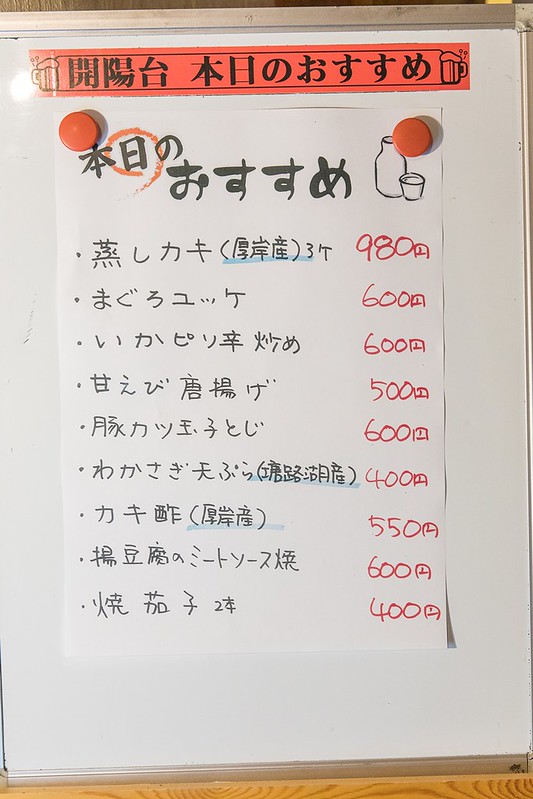 開陽台 本日のおすすめ
本日の
おすすめ
・蒸しカキ(厚岸産)3ケ 980円
・まぐろユッケ 600円
・いかピリ辛炒め 600円
・甘えび唐揚げ 500円
・豚カツ玉子とじ 600円
・わかさぎ天ぷら(塘路湖産) 400円
・カキ酢(厚岸産) 550円
・揚豆腐のミートソース焼 600円
・焼茄子 2本 400円